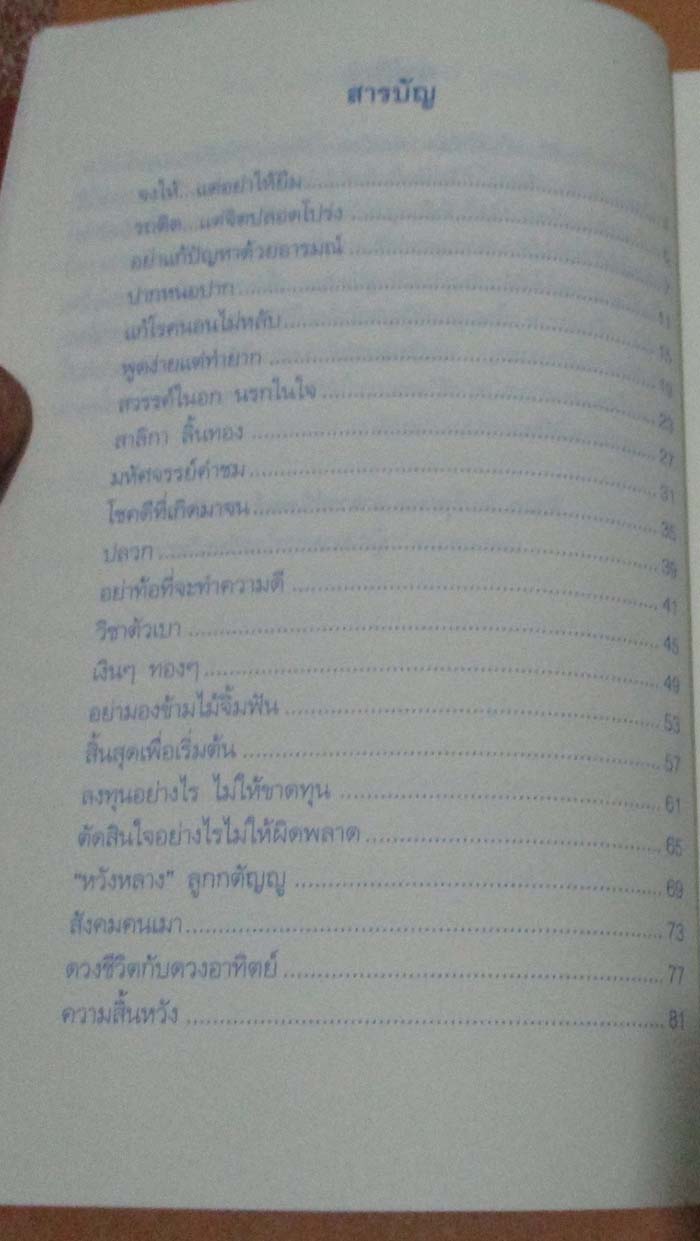 สารบัญ
จงให้...แต่อย่าให้ยืม
รถติด...แต่จิตปลอดโปร่ง
อย่าแก้ปัญหาด้วยอารมณ์
ปากหนอปาก ........ 11
แก้โรคนอนไม่หลับ ........ 15
พูดง่ายแต่ทำยาก ........ 19
สวรรค์ในอก นรกในใจ ........ 23
สาลิกา ลิ้นทอง ........ 27
มหัศจรรย์คำชม ........ 31
โชคดีที่เกิดมาจน ........ 35
ปลวก ........ 39
อย่าท้อที่จะทำความดี ........ 41
วิชาตัวเบา ........ 45
เงินๆ ทองๆ ........ 49
อย่ามองข้ามไม้จิ้มฟัน ........ 53
สิ้นสุดเพื่อเริ่มต้น ........ 57
ลงทุนอย่างไร ไม่ให้ขาดทุน ........ 61
ตัดสินใจอย่างไรไม่ให้ผิดพลาด ........ 65
"หวังหลาง" ลูกกตัญญู ........ 69
สังคมคนเมา ........ 73
ดวงชีวิตกับดวงอาทิตย์ ........ 77
ความสิ้นหวัง ........ 81